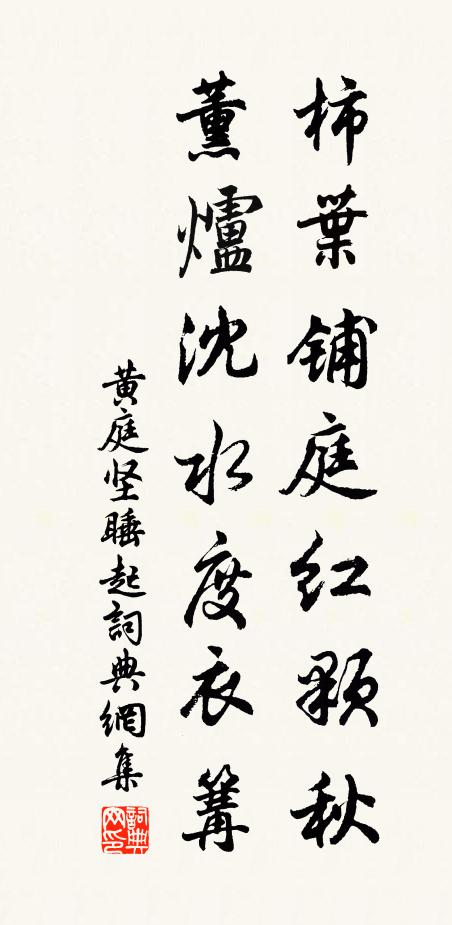 柿葉鋪庭紅顆秋
薰爐沈水度衣篝
黄庭坚睡起詞典網集
詞典
网印